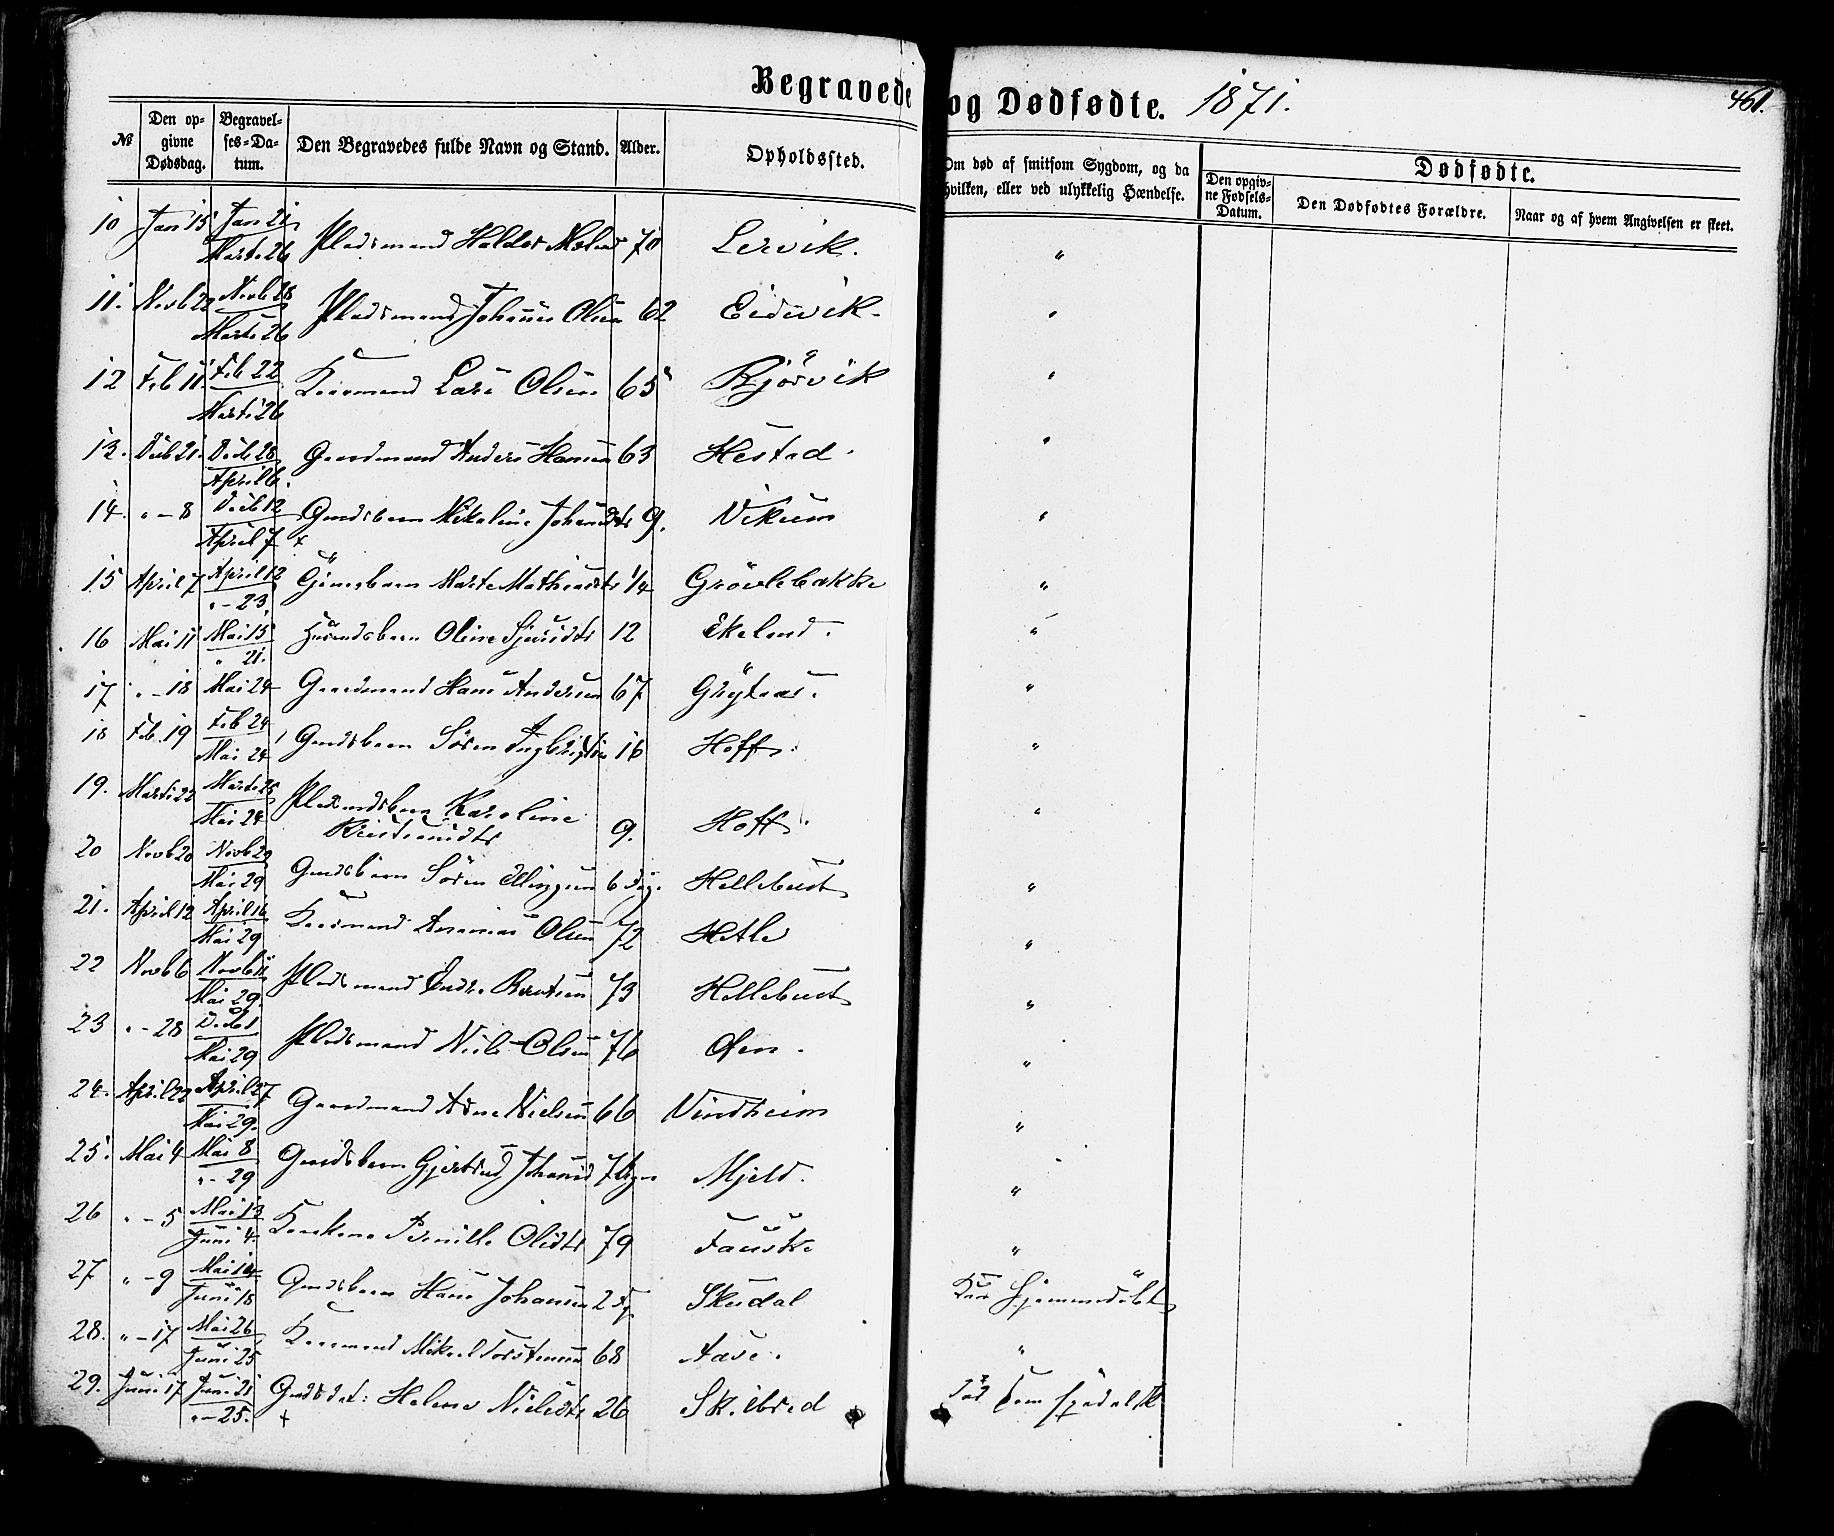 Begravede og Dødfødte. 1871. 461.
№ Den opgivne Dødsdag. Begravelses-Datum. Den Begravedes fulde Navn og Stand. Alder. Opholdssted. Om død af smitsom Sygdom, og da hvilken, eller ved ulykkelig Hændelse. Dødfødte.
Den opgivne Fødsels-Datum. Den Dødfødtes Forældre. Naar og af hvem Angivelsen er skeet.
10 Jan 15 Jan 21 Marts 26 Pladsmand Haldor 70 Lervik. "
11. Novb 22 Novb 28 Marts 26 Pladsmand Johannes Olsen 62 Eidevik. "
12 Feb 11 Feb 22 Marts 26 Kaarmand Lars Olsen 65 Bjørvik "
13. Decb 21. Decb 28 April 6. Gaardmand Anders Hansen 63 Hestad. "
14. " - 8 Decb 12 April 7 Gmdsbarn Nikoline Johansdtr 9. Vikum "
15 April 7 April 12 " - 23. Marte Mathiasdtr 14 Grøvlebakke "
16 Mai 11 Mai 15 " 21. Husmdsbarn Oline Sjursdtr 12 Ekeland. "
17 " - 18 Mai 24 Gaardmand Hans Andersen 67 Grytaas. "
18 Feb. 19 Feb 24 Mai 24 Gmdsbarn Søren Ingbrigtsen 16 Hoff. "
19. Marts 22 Marts 25 Mai 24 Pladsmdsbarn Karoline
Kristensdtr 9. Hoff. "
20 Novb 20 Novb 29 Mai 29 Gmdsbarn Søren Ellingsen 6 Dg. Hellebust "
21. April 12 April 16 Mai 29 Kaarmand Ananias Olsen 72 Hetle "
22 Novb 6 Novb 11 Mai 29. Pladsmand Endre Berntsen 73 Hellebust "
23 " - 28 Decb 1 Mai 29 Pladsmand Niels Olsen 76 Øen. "
24. April 22 April 27 Mai 29. Gaardmand Arne Nielsen 66 Vindheim "
25. Mai 4 Mai 8 " - 29 Gmdsbarn Gjertrud Johansd 7 Mjeld. "
26 " - 5 Mai 13 Juni 4. Kaarkone Pernille Olsdtr 79 Fauske "
27 " - 9 Mai 14 Juni 18 Gmdsbarn Hans Johansen 2 Dg Skudal Kun Hjemmedøbt
28. " - 17 Mai 26 Juni 25 Kaarmand Mikael Torstensen 68 Aase. "
29. Juni 17 Juni 21 " - 25. Gmdsdat: Helene Nielsdtr 26 Skilbred Død som spedalsk